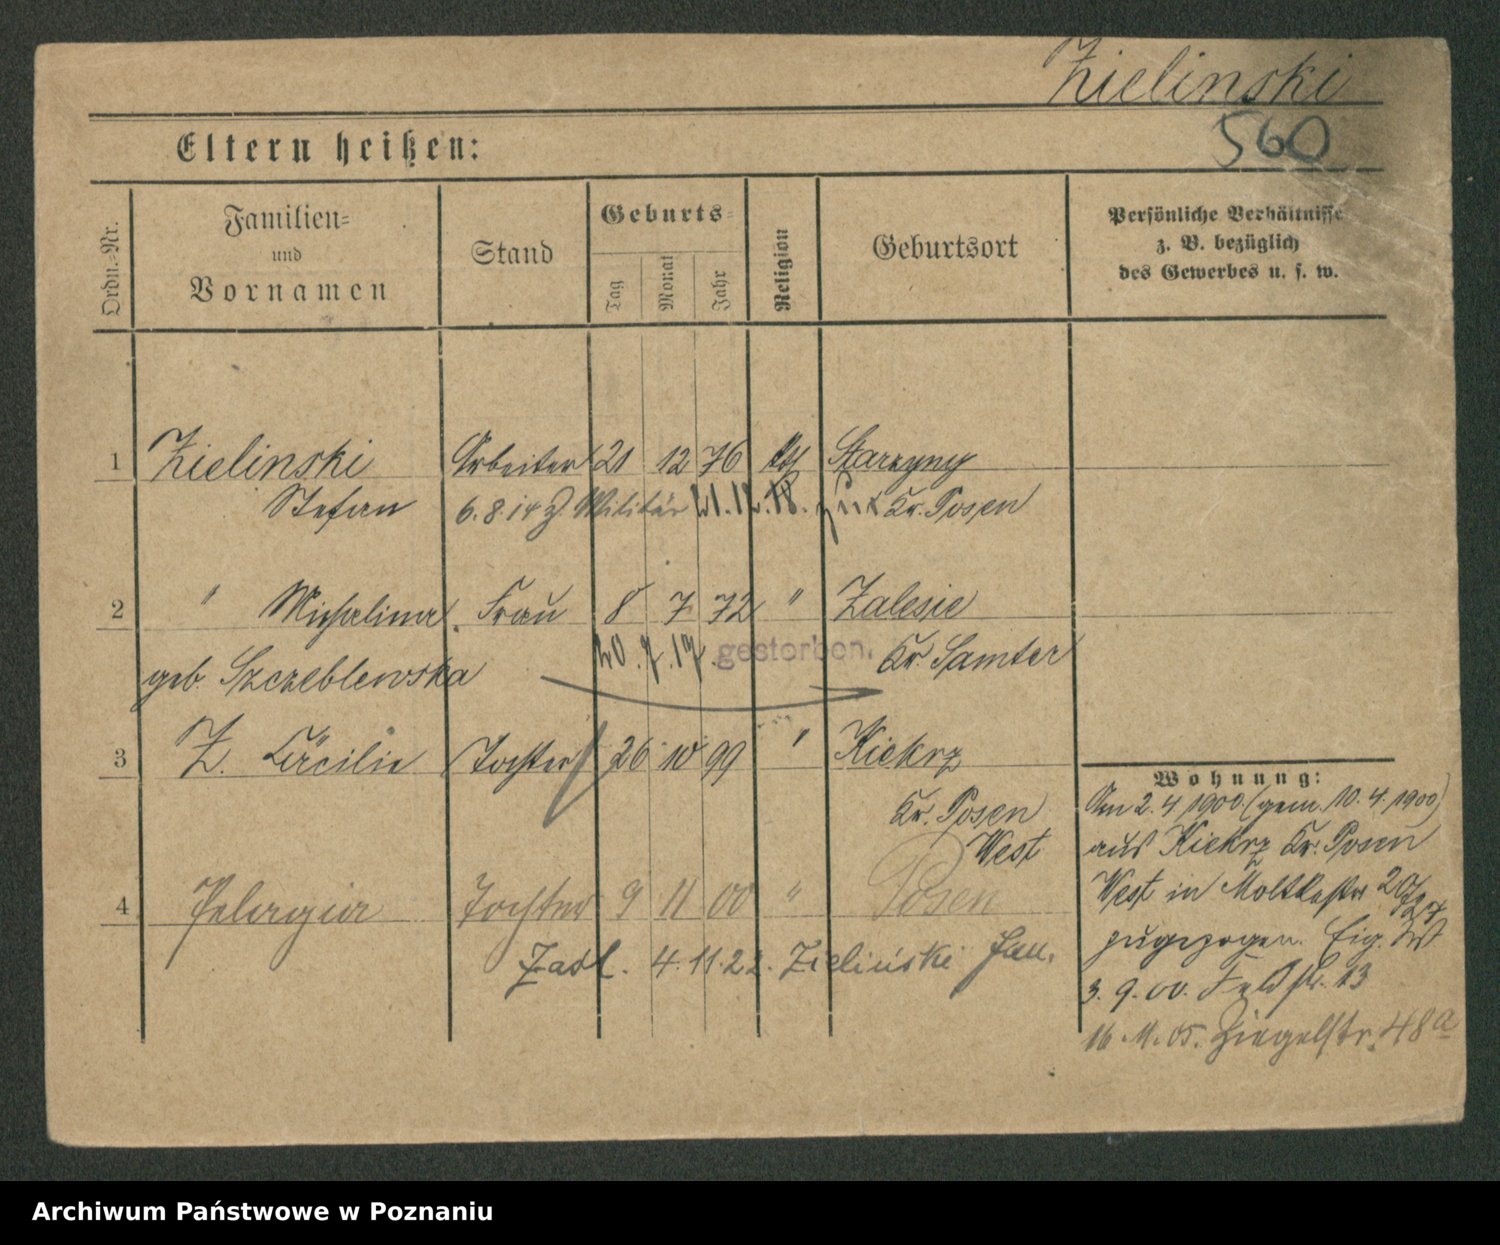 Zielinski
560
Eltern heißen:
Ordn.-Nr.
Familien- und Vornamen
Stand
Geburts-
Tag
Monat
Jahr
Religion
Geburtsort
Persönliche Verhältnisse
z. B. bezüglich
des Gewerbes u. s. w.
1 Zielinski Arbeiter 21 12 76 kath Starzyny
Stefan 6.8.14 z. Militär 21.12.18. zur Kr. Posen
2 " Michalina Frau 8 7 72 " Zalesie
20.7.17. gestorben. Kr. Samter
geb. Szczeblewska
3 Z. Cäcilie Tochter 26 10 99 " Kiekrz
Kr. Posen
West
4 Pelagia Tochter 9 11 00 " Posen
Zasl. 4.11.22. Zieliński Jan.
Wohnung:
Am 2.4.1900 (gem. 10.4.1900)
aus Kiekrz Kr. Posen
West in Moltkestr
zugezogen.
3.9.00. Feldstr. 13
16.11.05. Ziegelstr. 48a
Archiwum Państwowe w Poznaniu